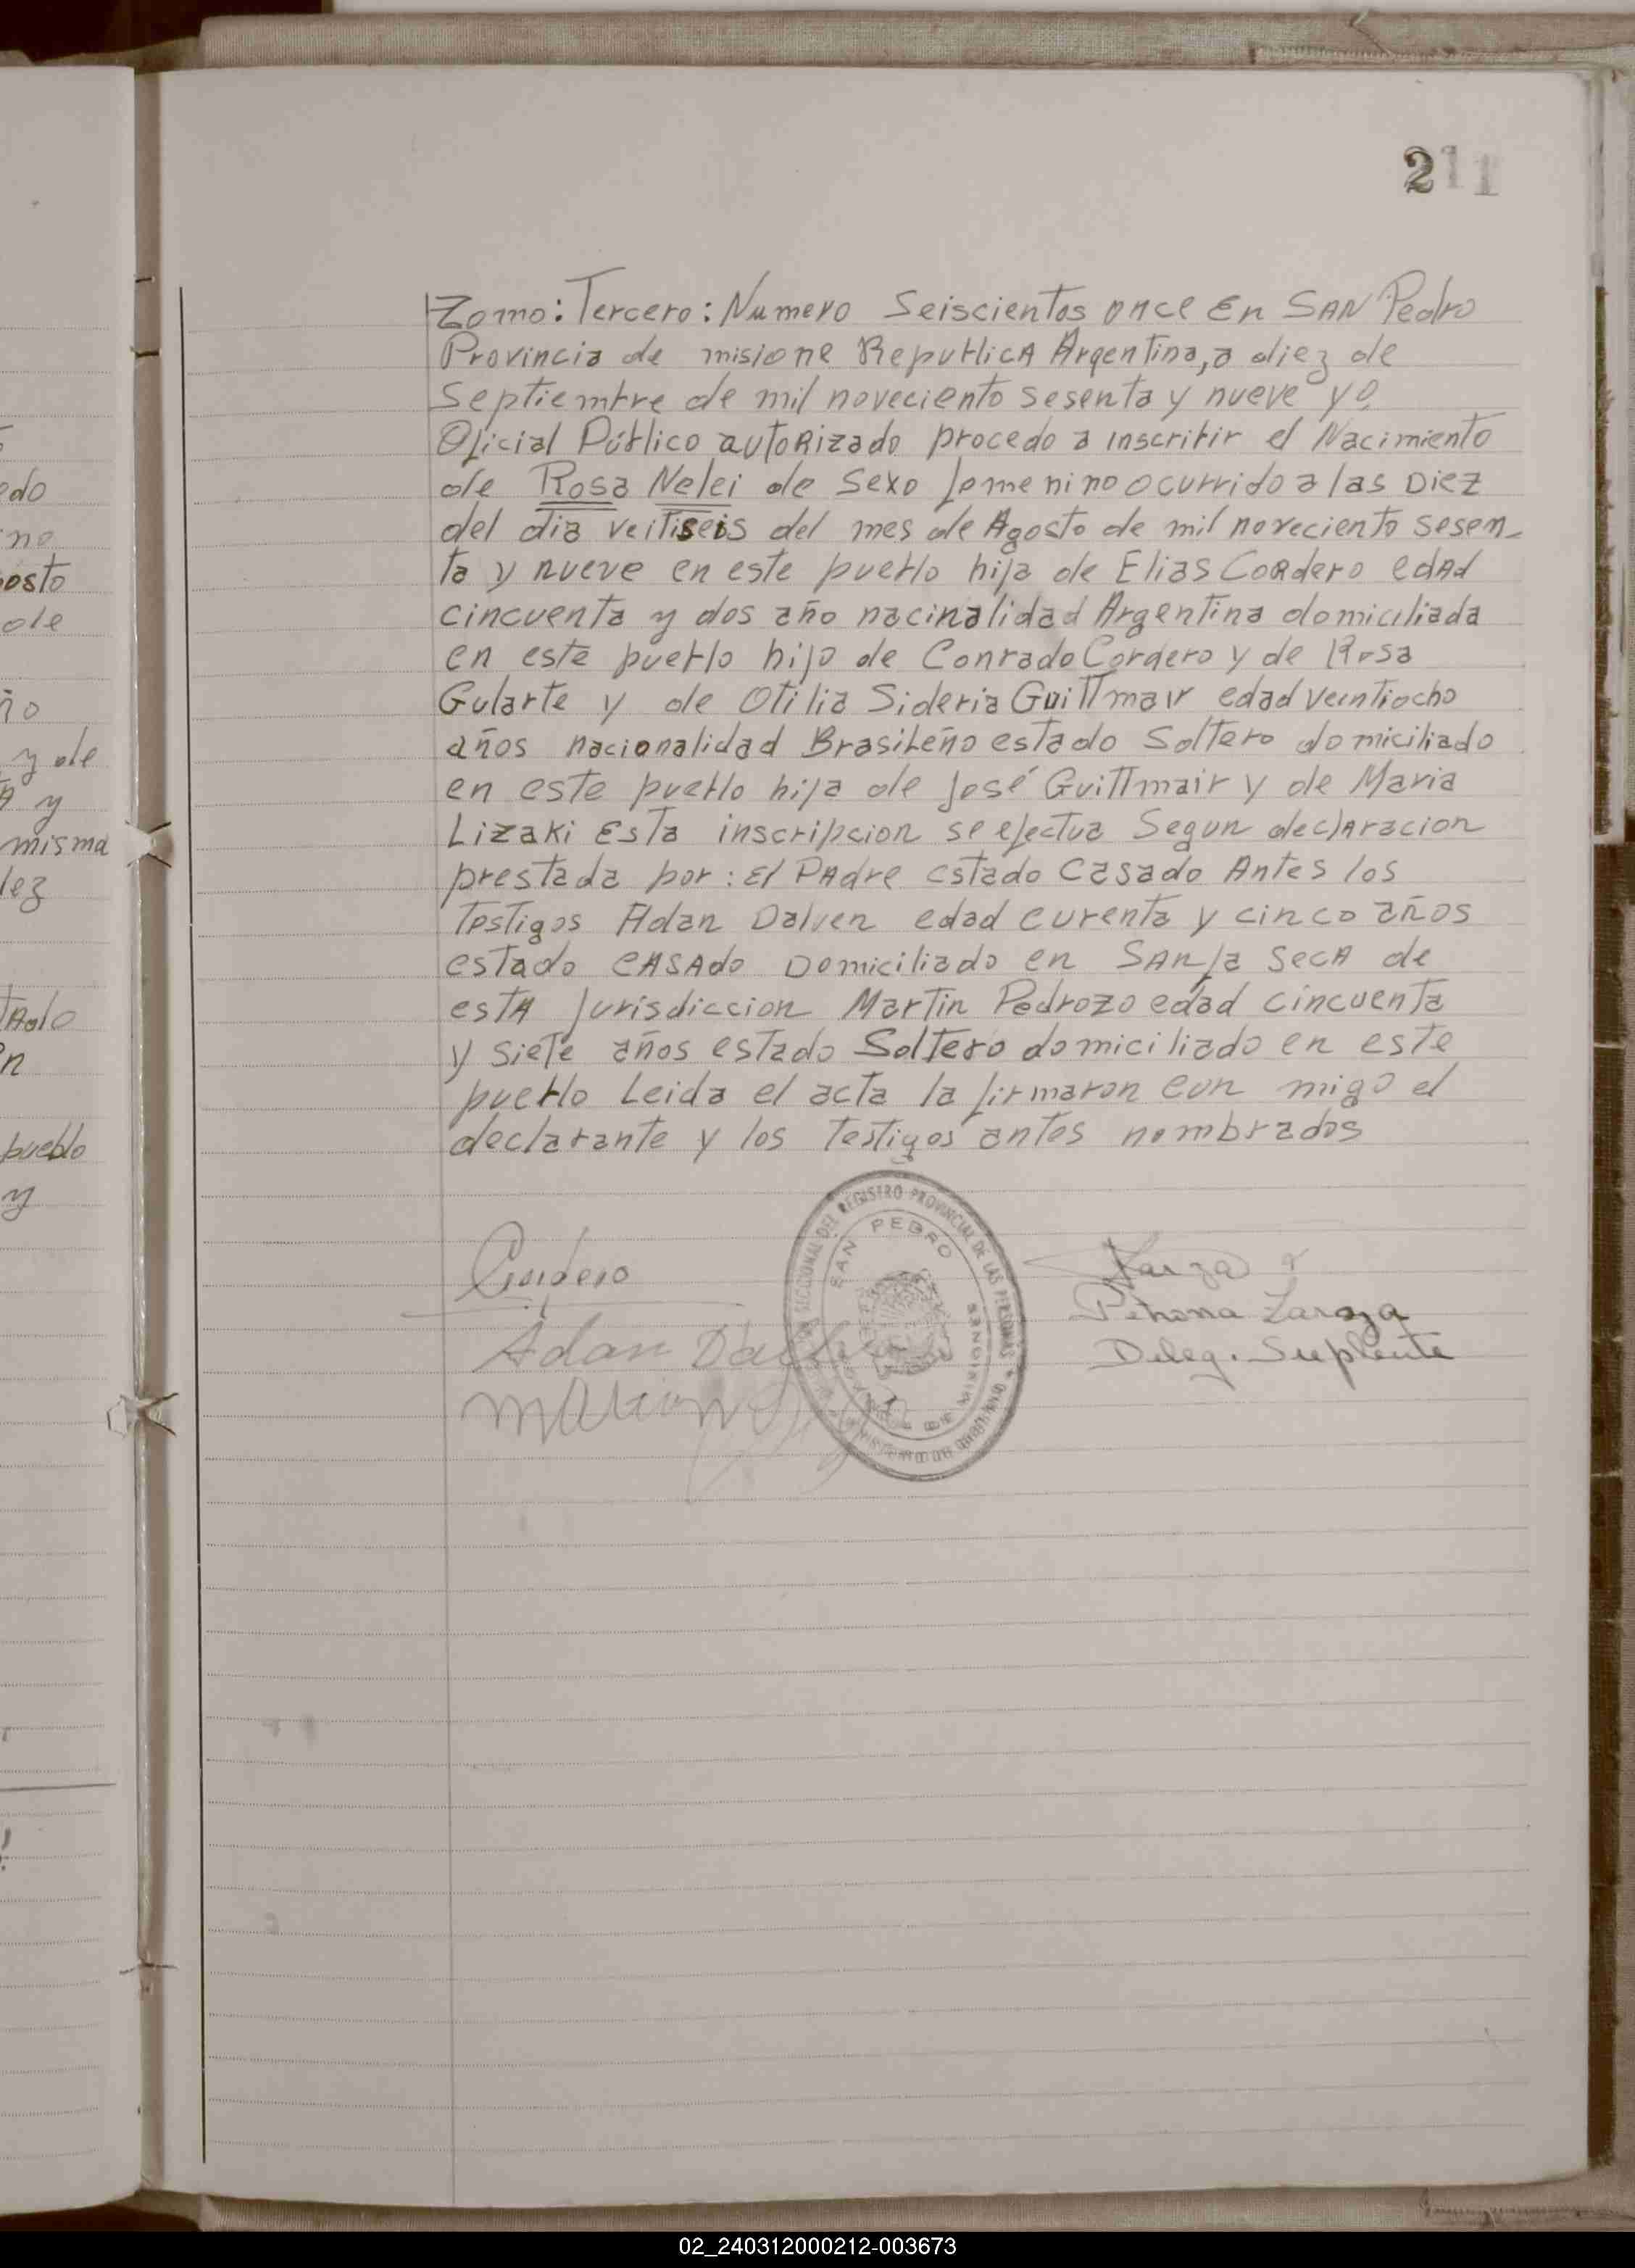 211
Tomo: Tercero: Numero Seiscientos once En SAN Pedro
Provincia de misione Republica Argentina, a diez de
Septiembre de mil noveciento sesenta y nueve yo
Oficial Público autorizado procedo a inscribir el Nacimiento
de Rosa Nelei de Sexo femenino ocurrido a las Diez
del dia veitiseis del mes de Agosto de mil noveciento sesen-
ta y nueve en este pueblo hija de Elias Cordero edad
cincuenta y dos año nacinalidad Argentina domiciliada
en este pueblo hijo de Conrado Cordero y de Rosa
Gularte y de Otilia Sideria Guittmair edad veintiocho
años nacionalidad Brasileño estado Soltero domiciliado
en este pueblo hija de José Guittmair y de Maria
Lizaki Esta inscripcion se efectua Segun declaracion
prestada por: El Padre estado Casado Antes los
Testigos Adan Dalven edad curenta y cinco años
estado casado Domiciliado en Sanja Seca de
esta Jurisdiccion Martin Pedrozo edad cincuenta
y siete años estado Soltero domiciliado en este
pueblo Leida el acta la firmaron con migo el
declarante y los testigos antes nombrados
Cordero
Adan
REGISTRO PROVINCIAL DE LAS PERSONAS
SAN PEDRO
MISIONES
Petrona Zaroza
Deleg. Suplente
edo
ne
osto
de
ño
y de
y
misma
lez
tado
n
pueblo
y
02_240312000212-003673